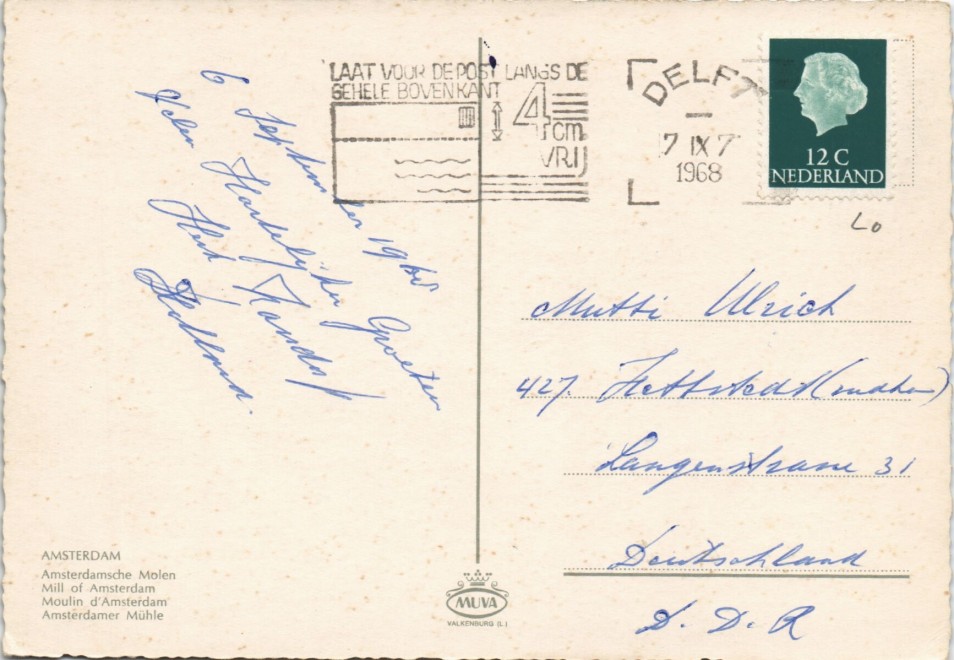 6 September 1968
Hartelijke Groeten
Holland.
LAAT VOOR DE POST LANGS DE
GEHELE BOVENKANT
4 cm
VRIJ
DELFT
7 IX 7
1968
12 C
NEDERLAND
Lo
Mutti Ulrich
427. Hettstedt
Langenstrasse 31
Deutschland
D. D. R
AMSTERDAM
Amsterdamsche Molen
Mill of Amsterdam
Moulin d'Amsterdam
Amsterdamer Mühle
MUVA
VALKENBURG (L.)